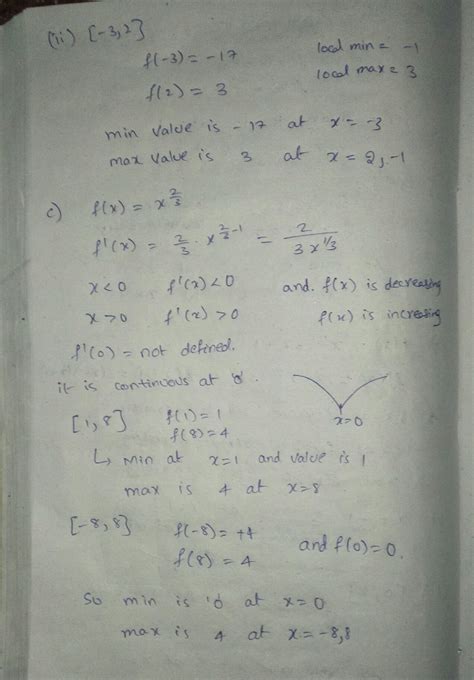 (ii) [-3,2]
f(-3) = -17 local min = -1
f(2) = 3 local max = 3
min value is -17 at x = -3
max value is 3 at x = 2, -1
c) f(x) = x^{2/3}
f'(x) = 2/3 · x^{2/3 - 1} = 2/(3x^{1/3})
x<0 f'(x)<0 and. f(x) is decreasing
x>0 f'(x)>0 f(x) is increasing
f'(0) = not defined.
it is continuous at '0'.
x=0
[1,8] f(1)=1
f(8)=4
↳ Min at x=1 and value is 1
max is 4 at x=8
[-8,8] f(-8) = +4
f(8) = 4 and f(0)=0.
So min is '0 at x=0
max is 4 at x=-8,8